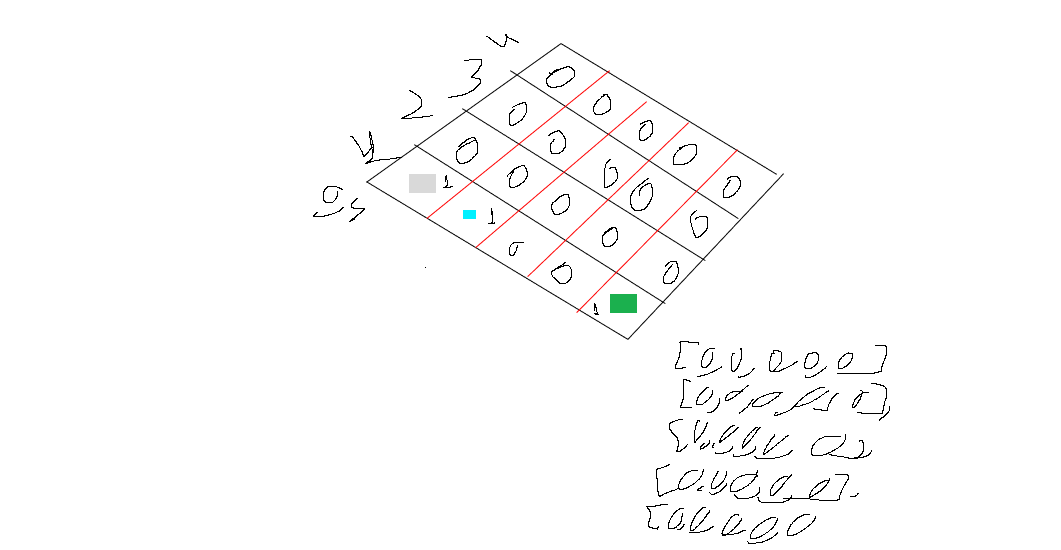 4
3
2
0
0 0
0 0 0
0 0 0 0
1 0 0 0 0
1 0 0 0
0 0
1
[0, 0, 0, 0, 0]
[0, 0, 0, 0, 0],
0
[0, 0, 0, 0, 0],
[0, 0, 0, 0, 0